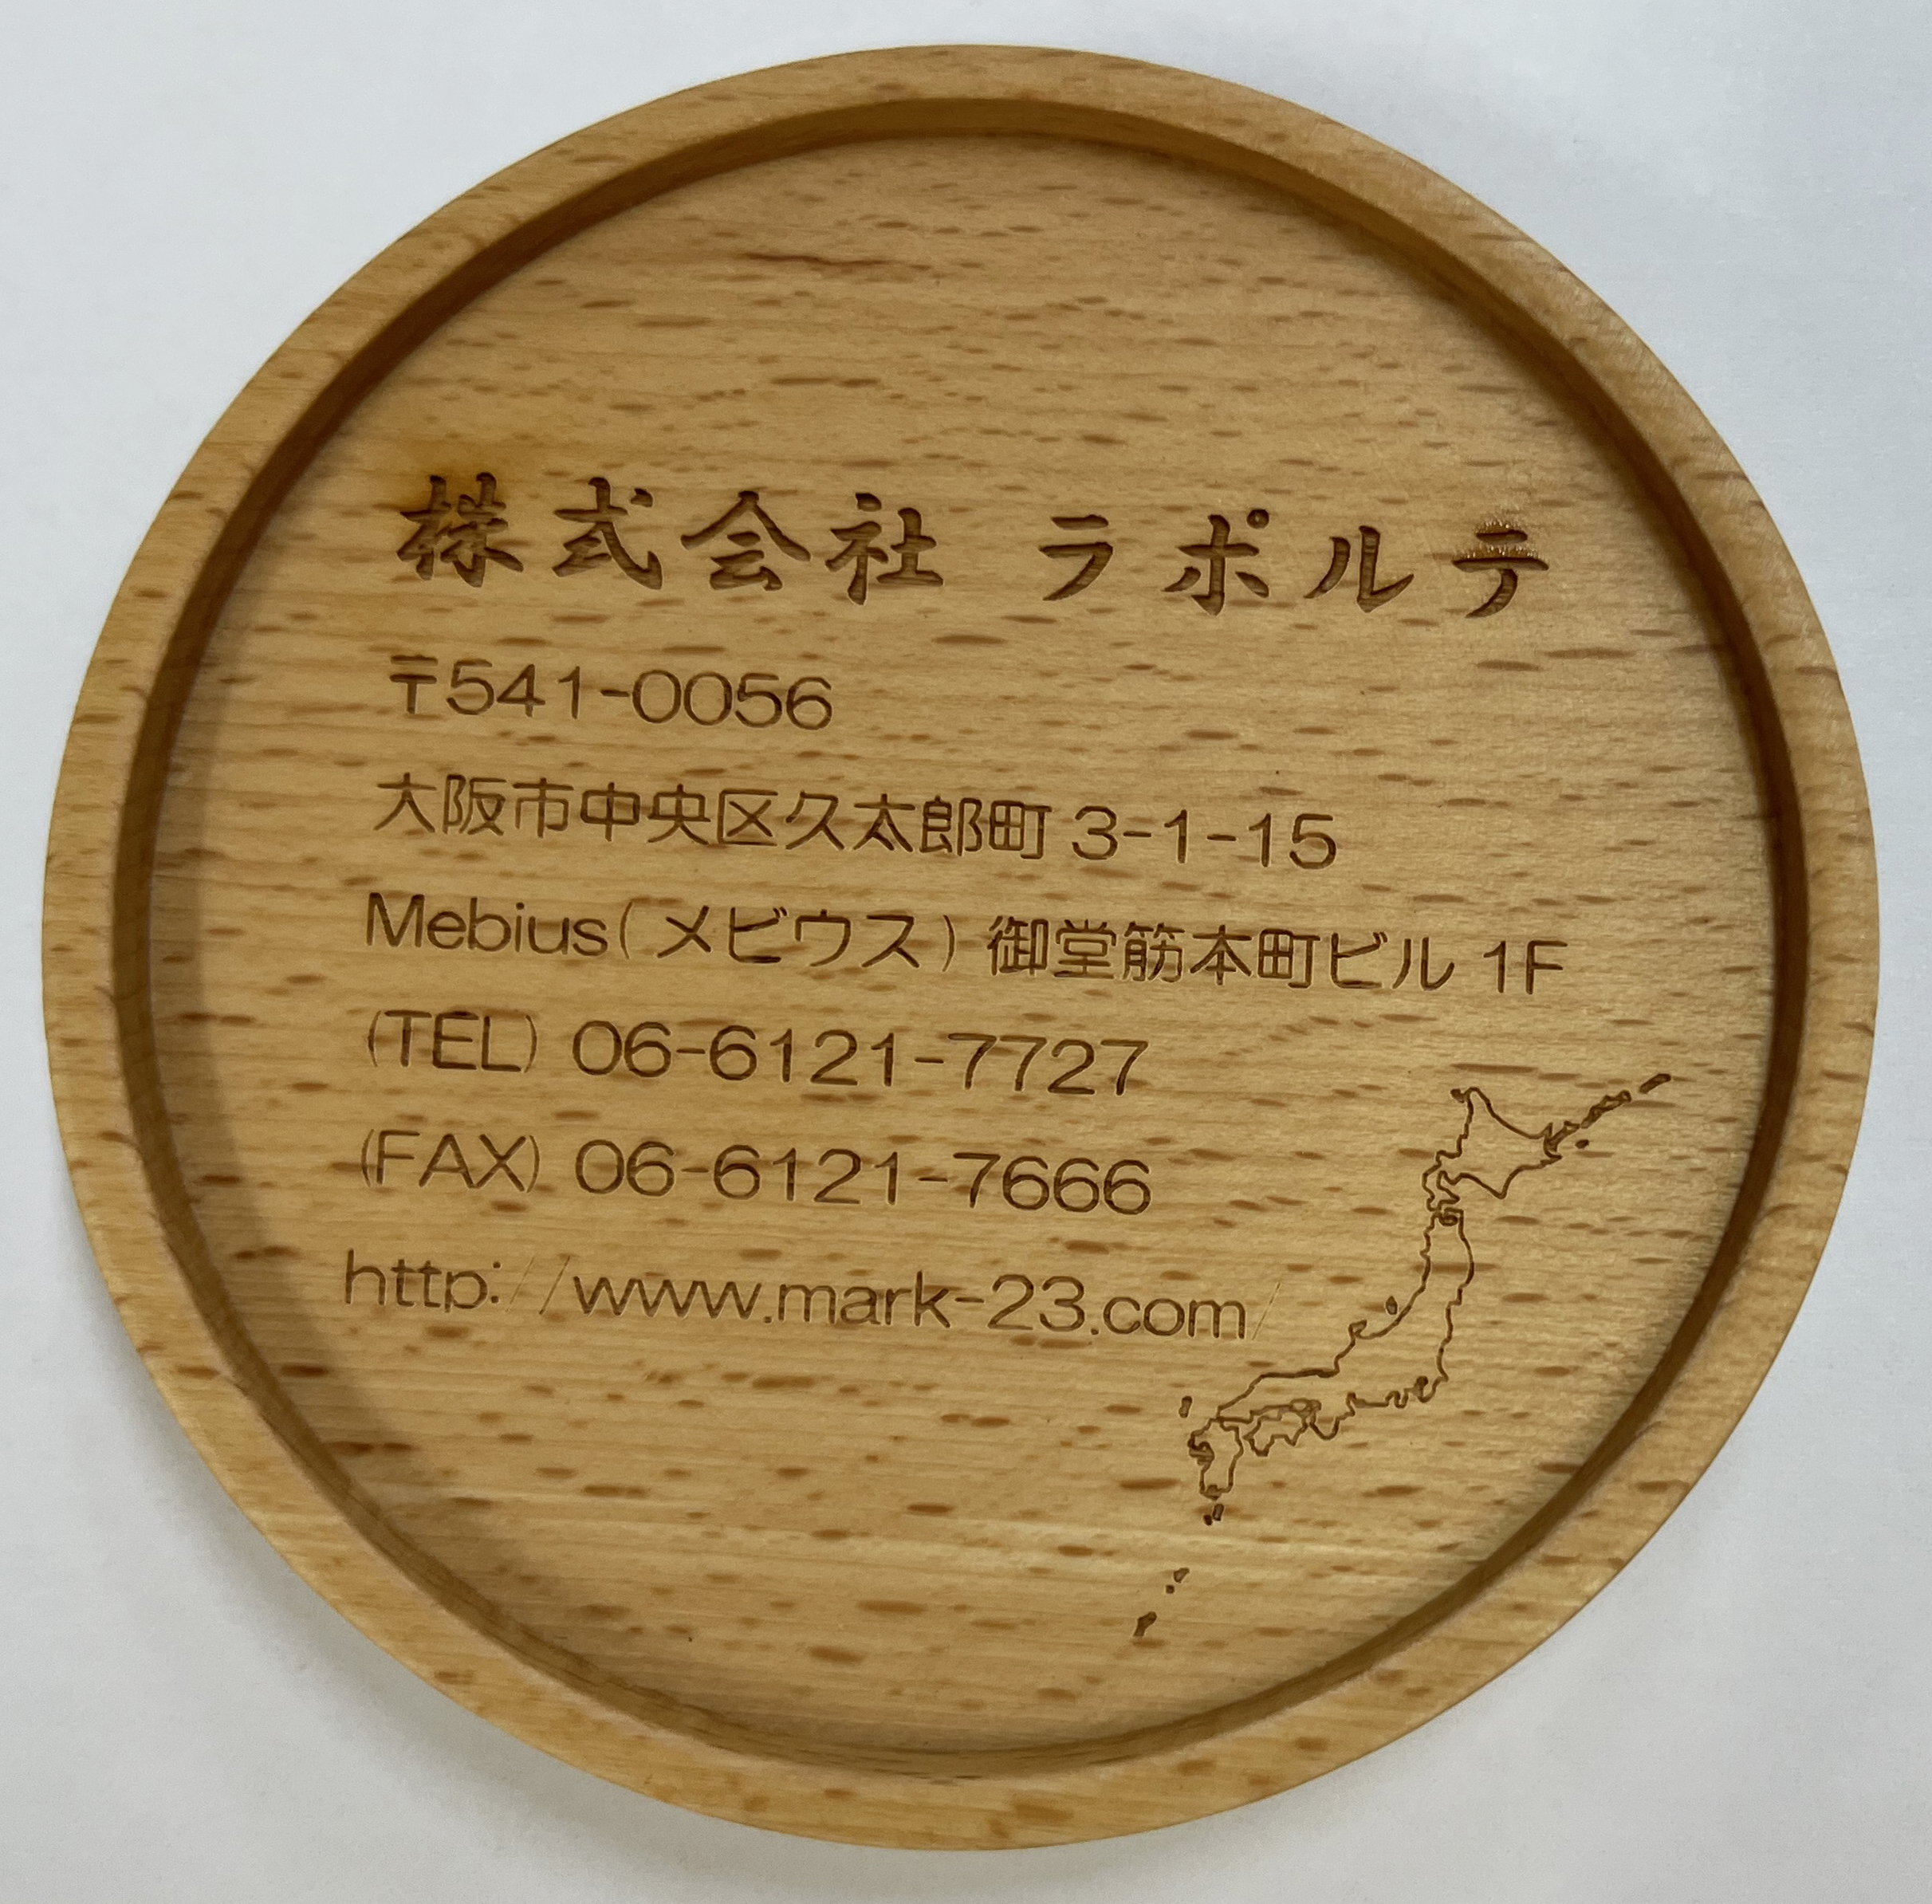 株式会社 ラポルテ
〒541-0056
大阪市中央区久太郎町 3-1-15
Mebius(メビウス) 御堂筋本町ビル 1F
(TEL) 06-6121-7727
(FAX) 06-6121-7666
http://www.mark-23.com/